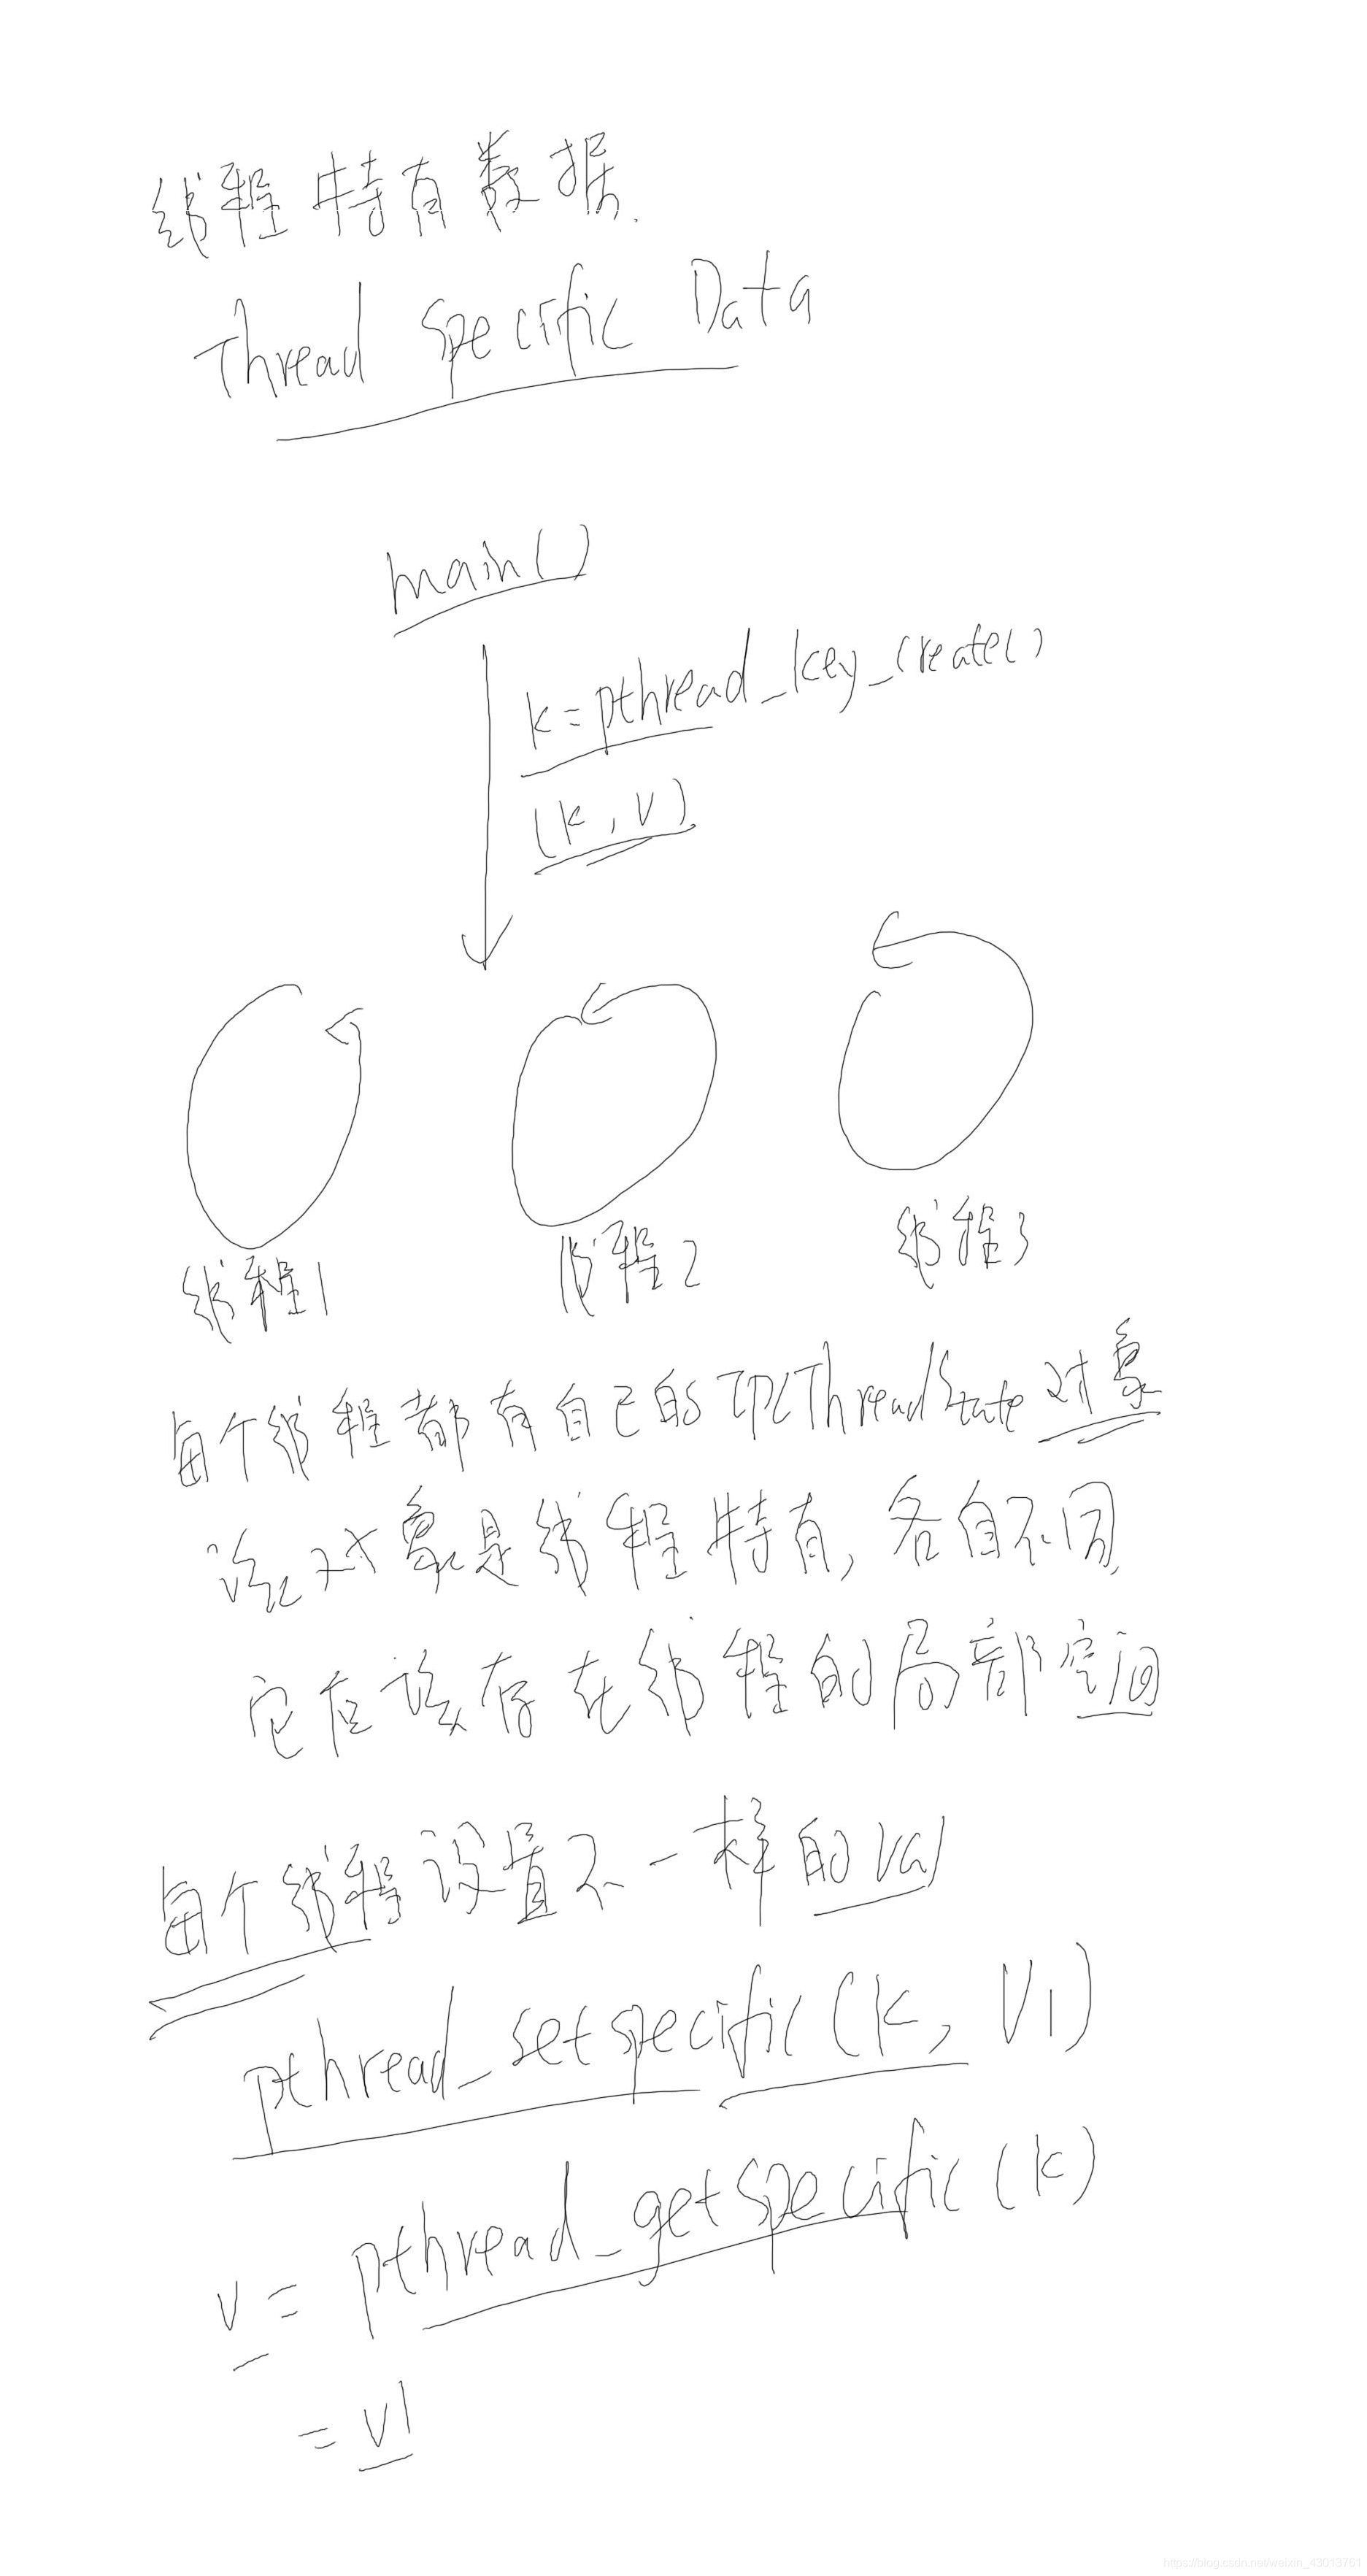 线程特有数据.
Thread Specific Data
main()
k=pthread_key_create()
(k,v)
线程1
线程2
线程3
每个线程都有自己的IPCThreadState对象
该对象是线程特有,各自不同,
它应该存在线程的局部空间
每个线程设置不一样的val
pthread_setspecific(k, V1)
v = pthread_getspecific(k)
= v1
https://blog.csdn.net/weixin_43013761